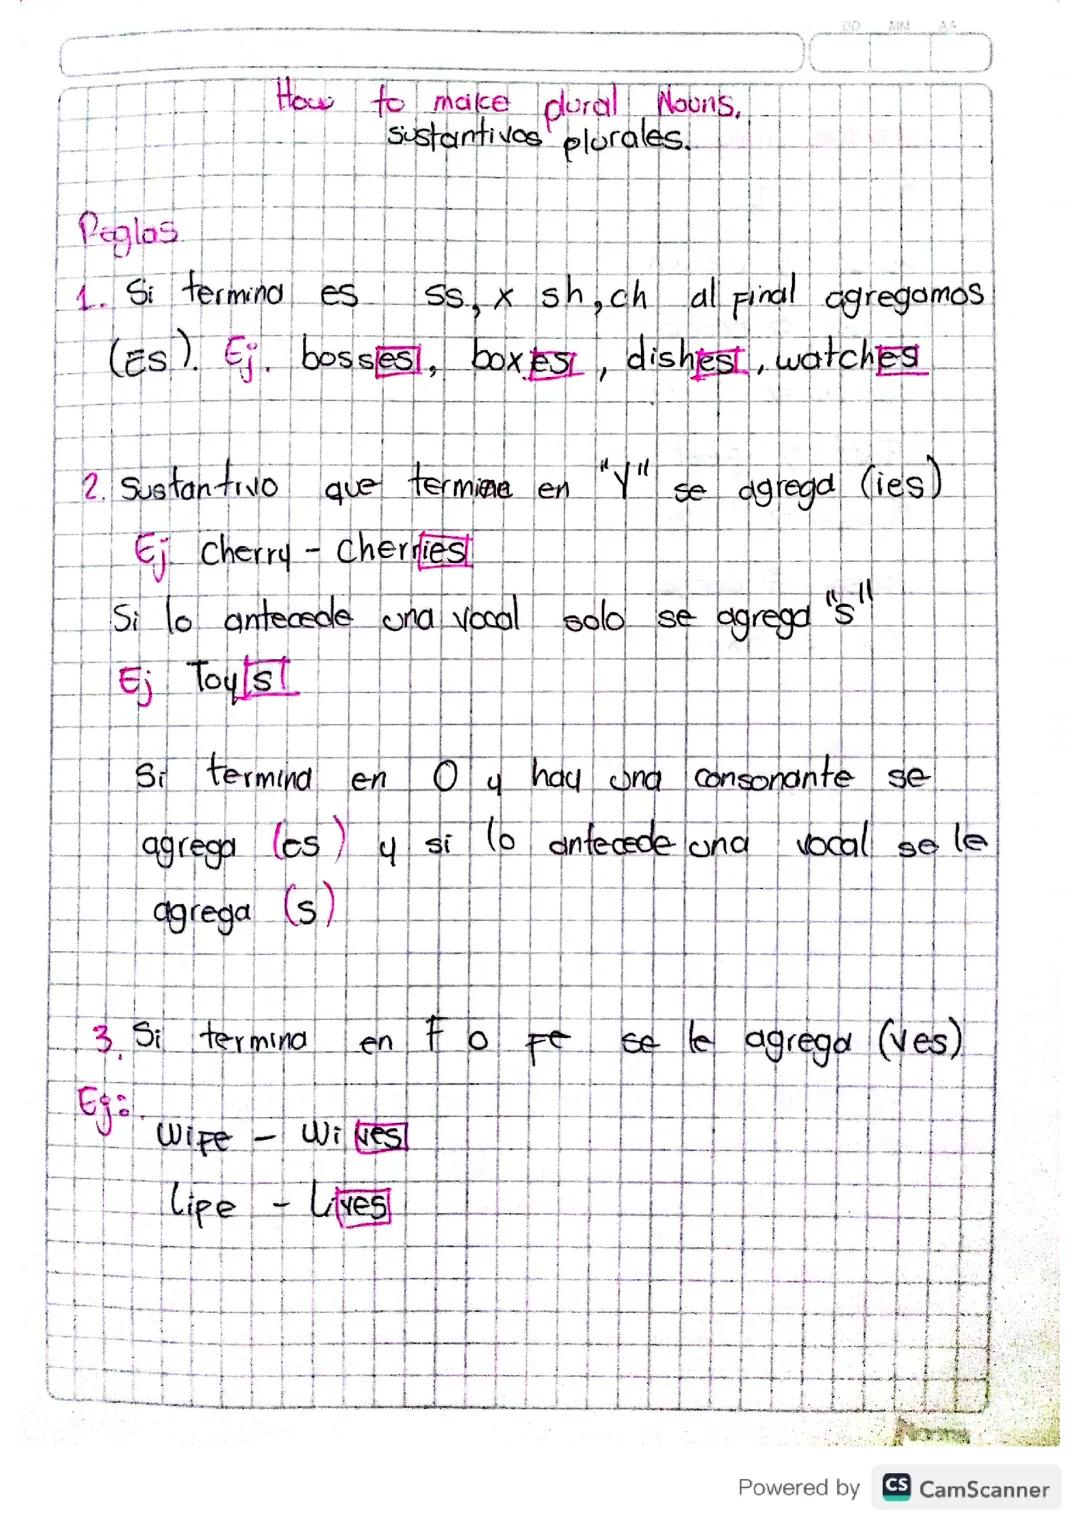 DD MM AA
How to make plural Nouns.
sustantivos plurales.
Reglas
1. Si termina es ss, x sh, ch al final agregamos
(Es). Ej. bosses, boxes, dishes, watches
2. Sustantivo que termine en "Y" se agrega (ies)
Ej Cherry - cherries
Si lo antecede una vocal solo se agrega "s"
Ej Toys
Si termina en O y hay una consonante se
agrega (es) y si lo antecede una vocal se le
agrega (s)
3. Si termina en F o Fe se le agrega (ves)
Eg:.
Wife - Wives
Life - Lives
Norma
Powered by CS CamScanner